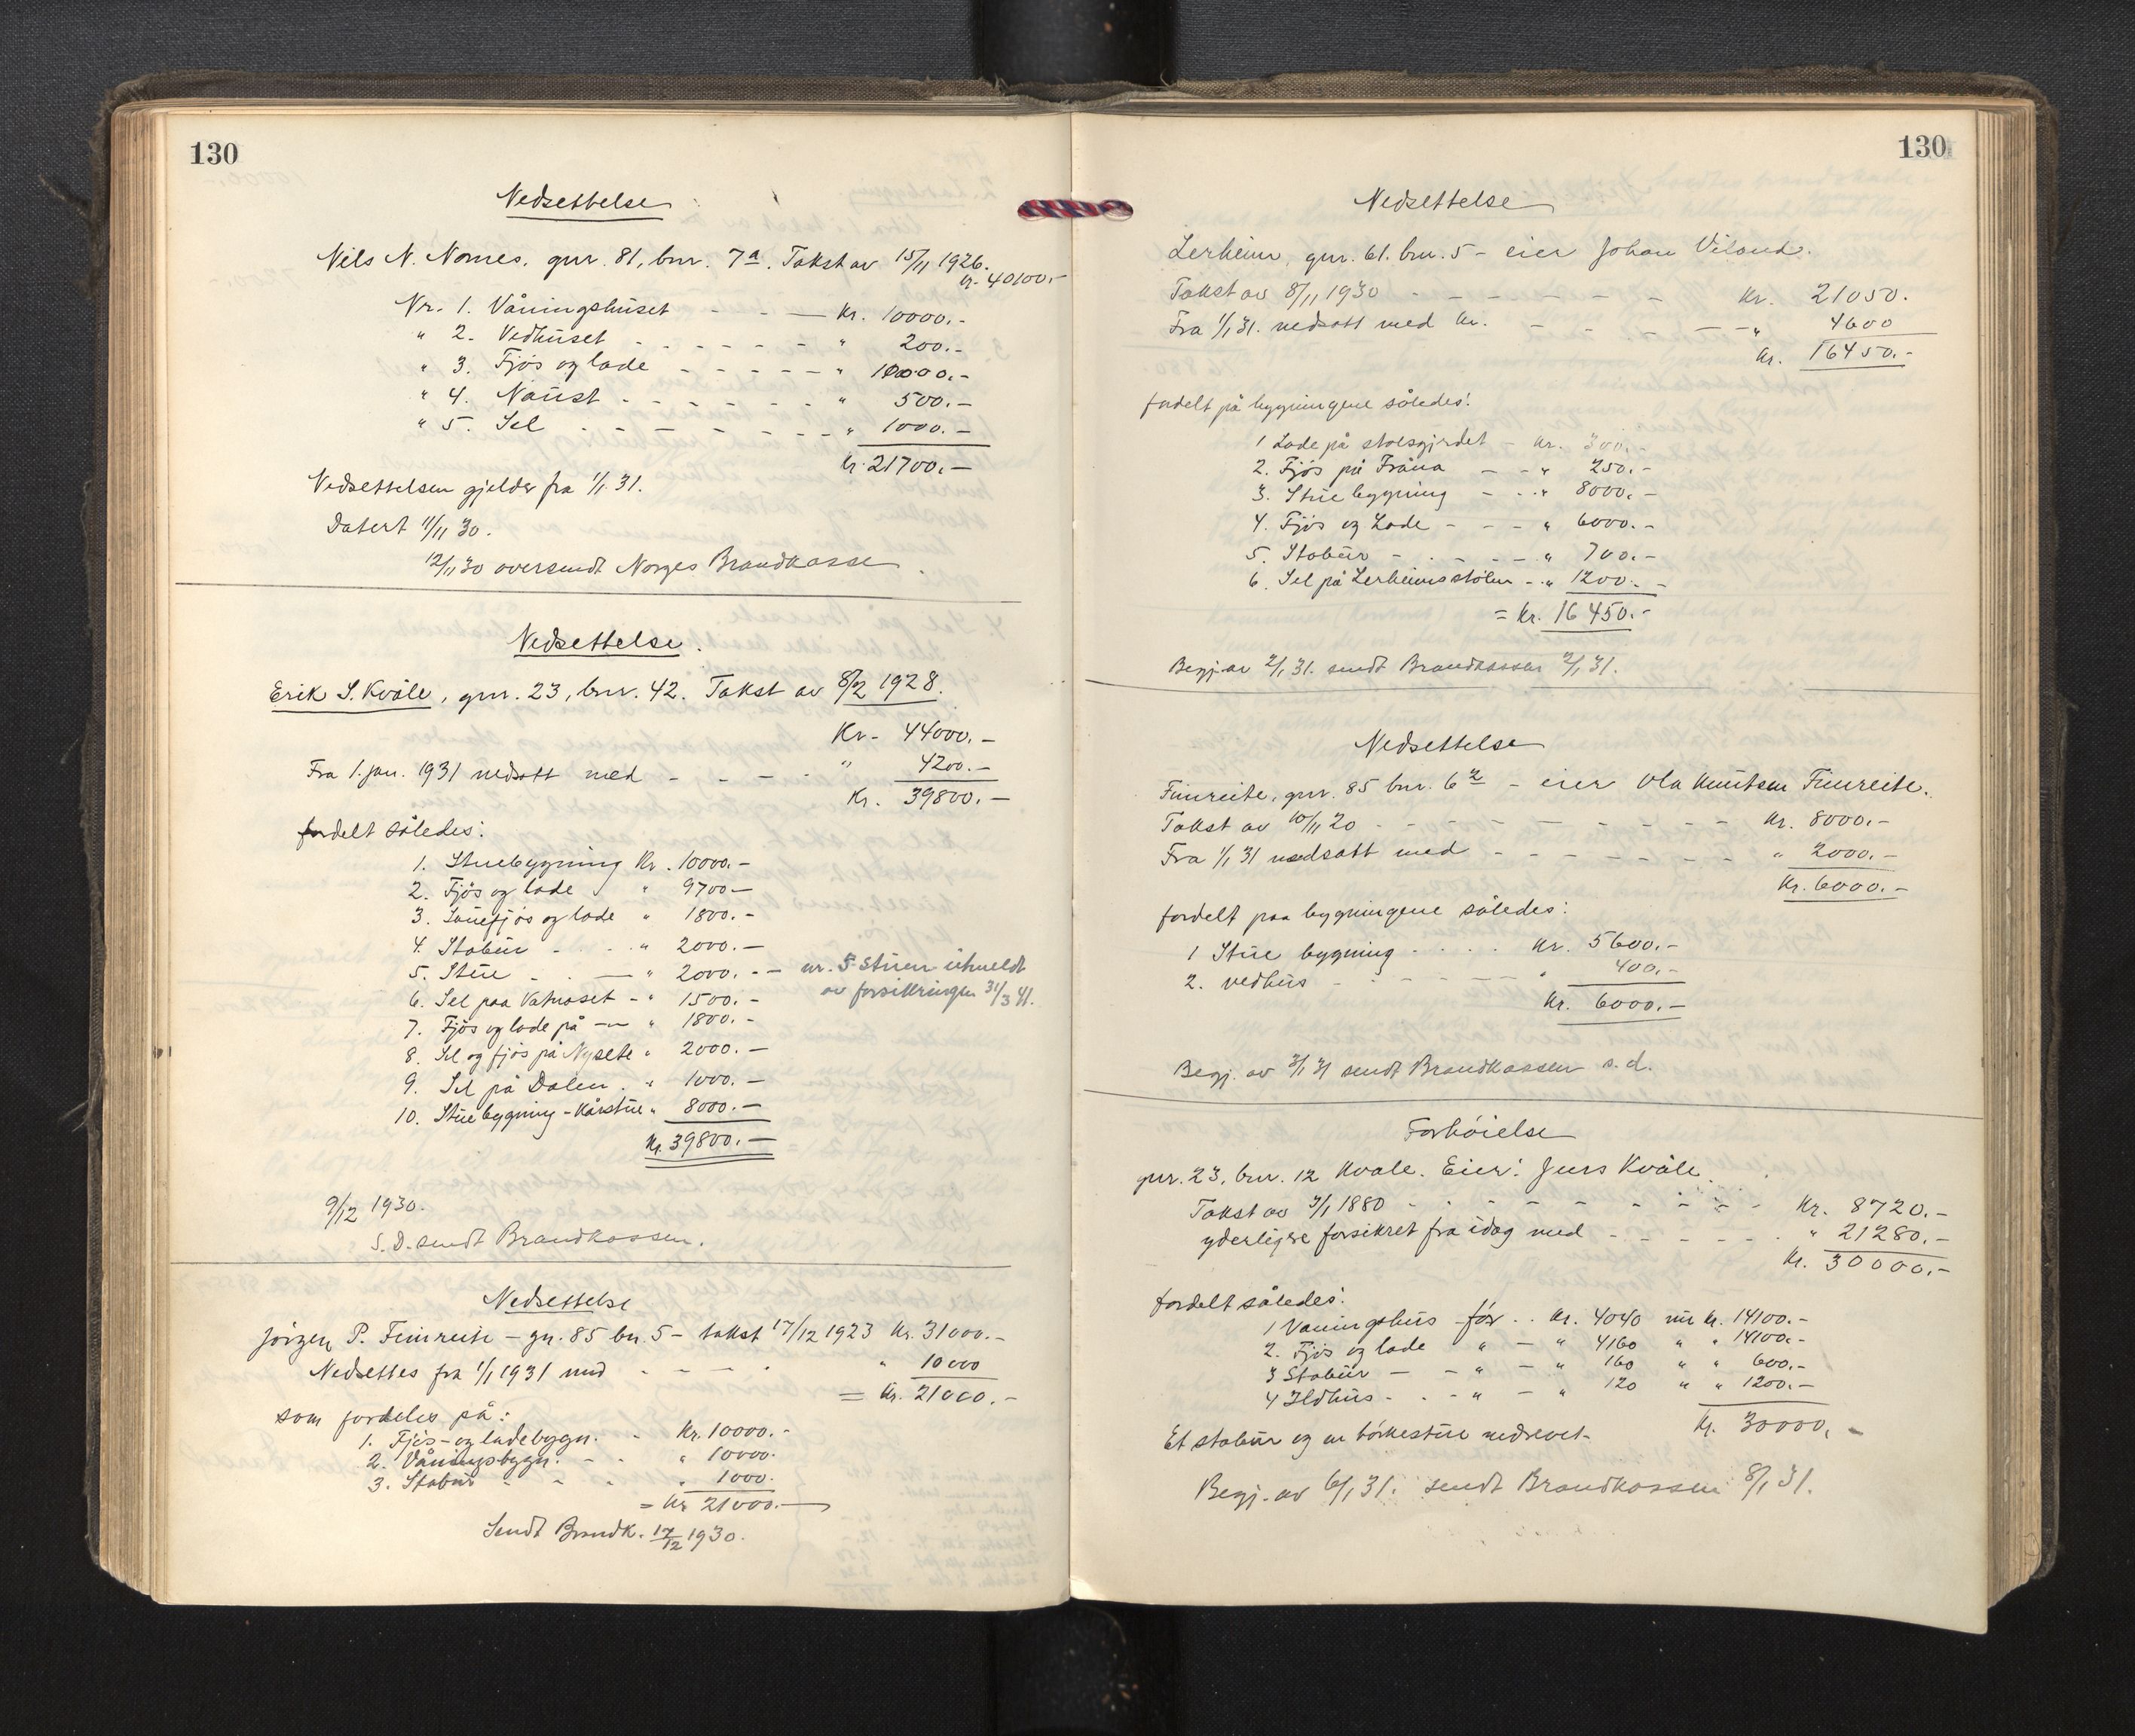 130
Nedsettelse
Nils N. Nornes, gnr. 81, bnr. 7a. Takst av 15/11 1926.
kr. 40100.-
Nr. 1. Våningshuset - - — Kr. 10000.-
" 2. Vedhuset - - - - - - " 200.-
" 3. Fjös og lade - - - - - " 10000.-
" 4. Naust - - - - - - " 500.-
" 5. Sel - - - - - - - " 1000.-
Kr. 21700.-
Nedsettelsen gjelder fra 1/1 31.
Datert 11/11 30.
12/11 30 oversendt Norges Brandkasse.
Nedsettelse.
Erik S. Kvåle, gnr. 23, bnr. 42. Takst av 8/2 1928.
Kr. 44000.-
Fra 1. jan. 1931 nedsatt med - - - - " 4200.-
Kr. 39800.-
fordelt således:
1. Stuebygning Kr. 10000.-
2. Fjös og lade " 9700-
3. Sauefjös og lade " 1800.-
4. Stabur - . - " 2000.-
5. Stue - . — " 2000.- - nr. 5 Stuen utmeldt
av forsikringen 31/3 41.
6. Sel paa Vatnaset - " 1500.-
7. Fjös og lade på -"- " 1800.-
8. Sel og fjös på Nysete " 2000.-
9. Sel på Dalen . " 1000.-
10. Stuebygning - Kårstue " 8000.-
Kr. 39800.-
9/12 1930.
S.D. sendt Brandkassen.
Nedsettelse
Jörgen P. Fimreite - gn. 85 bn. 5 - takst 17/12 1923 Kr. 31000.-
Nedsettes fra 1/1 1931 med - - - - " 10000
= Kr. 21000.-
som fordeles på:
1. Fjös- og ladebygn. - Kr. 10000.-
2. Våningsbygn. - - " 10000.
3. Stabur - - - " 1000.
= Kr 21000.-
Sendt Brandk. 17/12 1930.
130
Nedsettelse
Lerheim, gnr. 61. bnr. 5 - eier Johan Viland.
Takst av 8/11 1930 - - - - - - Kr. 21050.
Fra 1/1 31. nedsatt med kr. - - - - - " 4600
Kr. 16450.-
fordelt på bygningene således:
1 Lade på stølsgjerdet - Kr. 300.-
2. Fjös på Fråna - - " 250.-
3. Stuebygning - - " 8000.-
4. Fjös og Lade - - - " 6000.-
5. Stabur - - - - " 700.-
6. Sel på Lerheimsstölen - " 1200.-
= Kr. 16450.-
Begj. av 2/1 31. sendt Brandkassen 2/1 31.
Nedsettelse
Fimreite, gnr. 85 bnr. 6² - eier Ola Knutsen Fimreite.
Takst av 10/11 20 - - - - - - - - Kr. 8000.-
Fra 1/1 31 nedsatt med - - - - - - " 2000.-
Kr. 6000.-
fordelt paa bygningene således:
1 Stuebygning . . . . Kr. 5600.-
2. vedhus - - - - - " 400.-
Kr. 6000.-
Begj. av 3/1 31 sendt Brandkassen s.d.
Forhöielse
gnr. 23, bnr. 12 Kvale. Eier: Jens Kvåle.
Takst av 7/1 1880 - - - - - - - - Kr. 8720.-
yderligere forsikret fra idag med - - - - - " 21280.-
Kr. 30000.-
fordelt således:
1 Vaningshus för . . Kr. 4040 nu kr. 14100.-
2. Fjös og lade " - " 4160 " " 14100.-
3 Stabur - - " - " 160 " " 600.-
4 Ildhus - . - " - " 120 " " 1200.-
Kr. 30000.-
Et stabur og en törkestue nedrevet.
Begj. av 6/1 31. sendt Brandkassen 8/1 31.